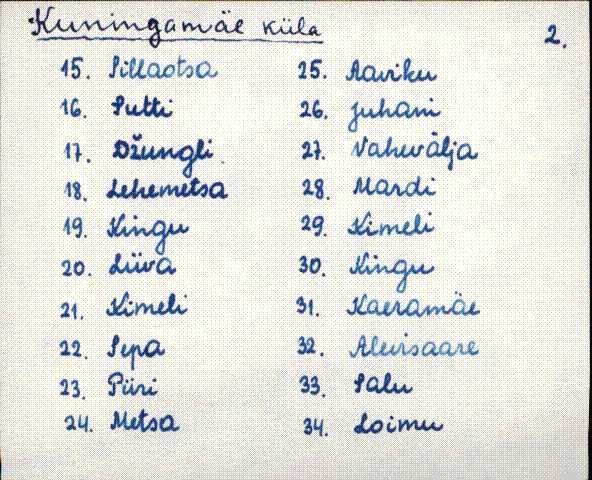 Kuningamäe küla
2.
15. Sillaotsa
16. Sutti
17. Džungli
18. Lehemetsa
19. Kingu
20. Liiva
21. Kimeli
22. Sepa
23. Piiri
24. Metsa
25. Aaviku
26. Juhani
27. Vahevälja
28. Mardi
29. Kimeli
30. Kingu
31. Kaeramäe
32. Alevisaare
33. Salu
34. Loimu